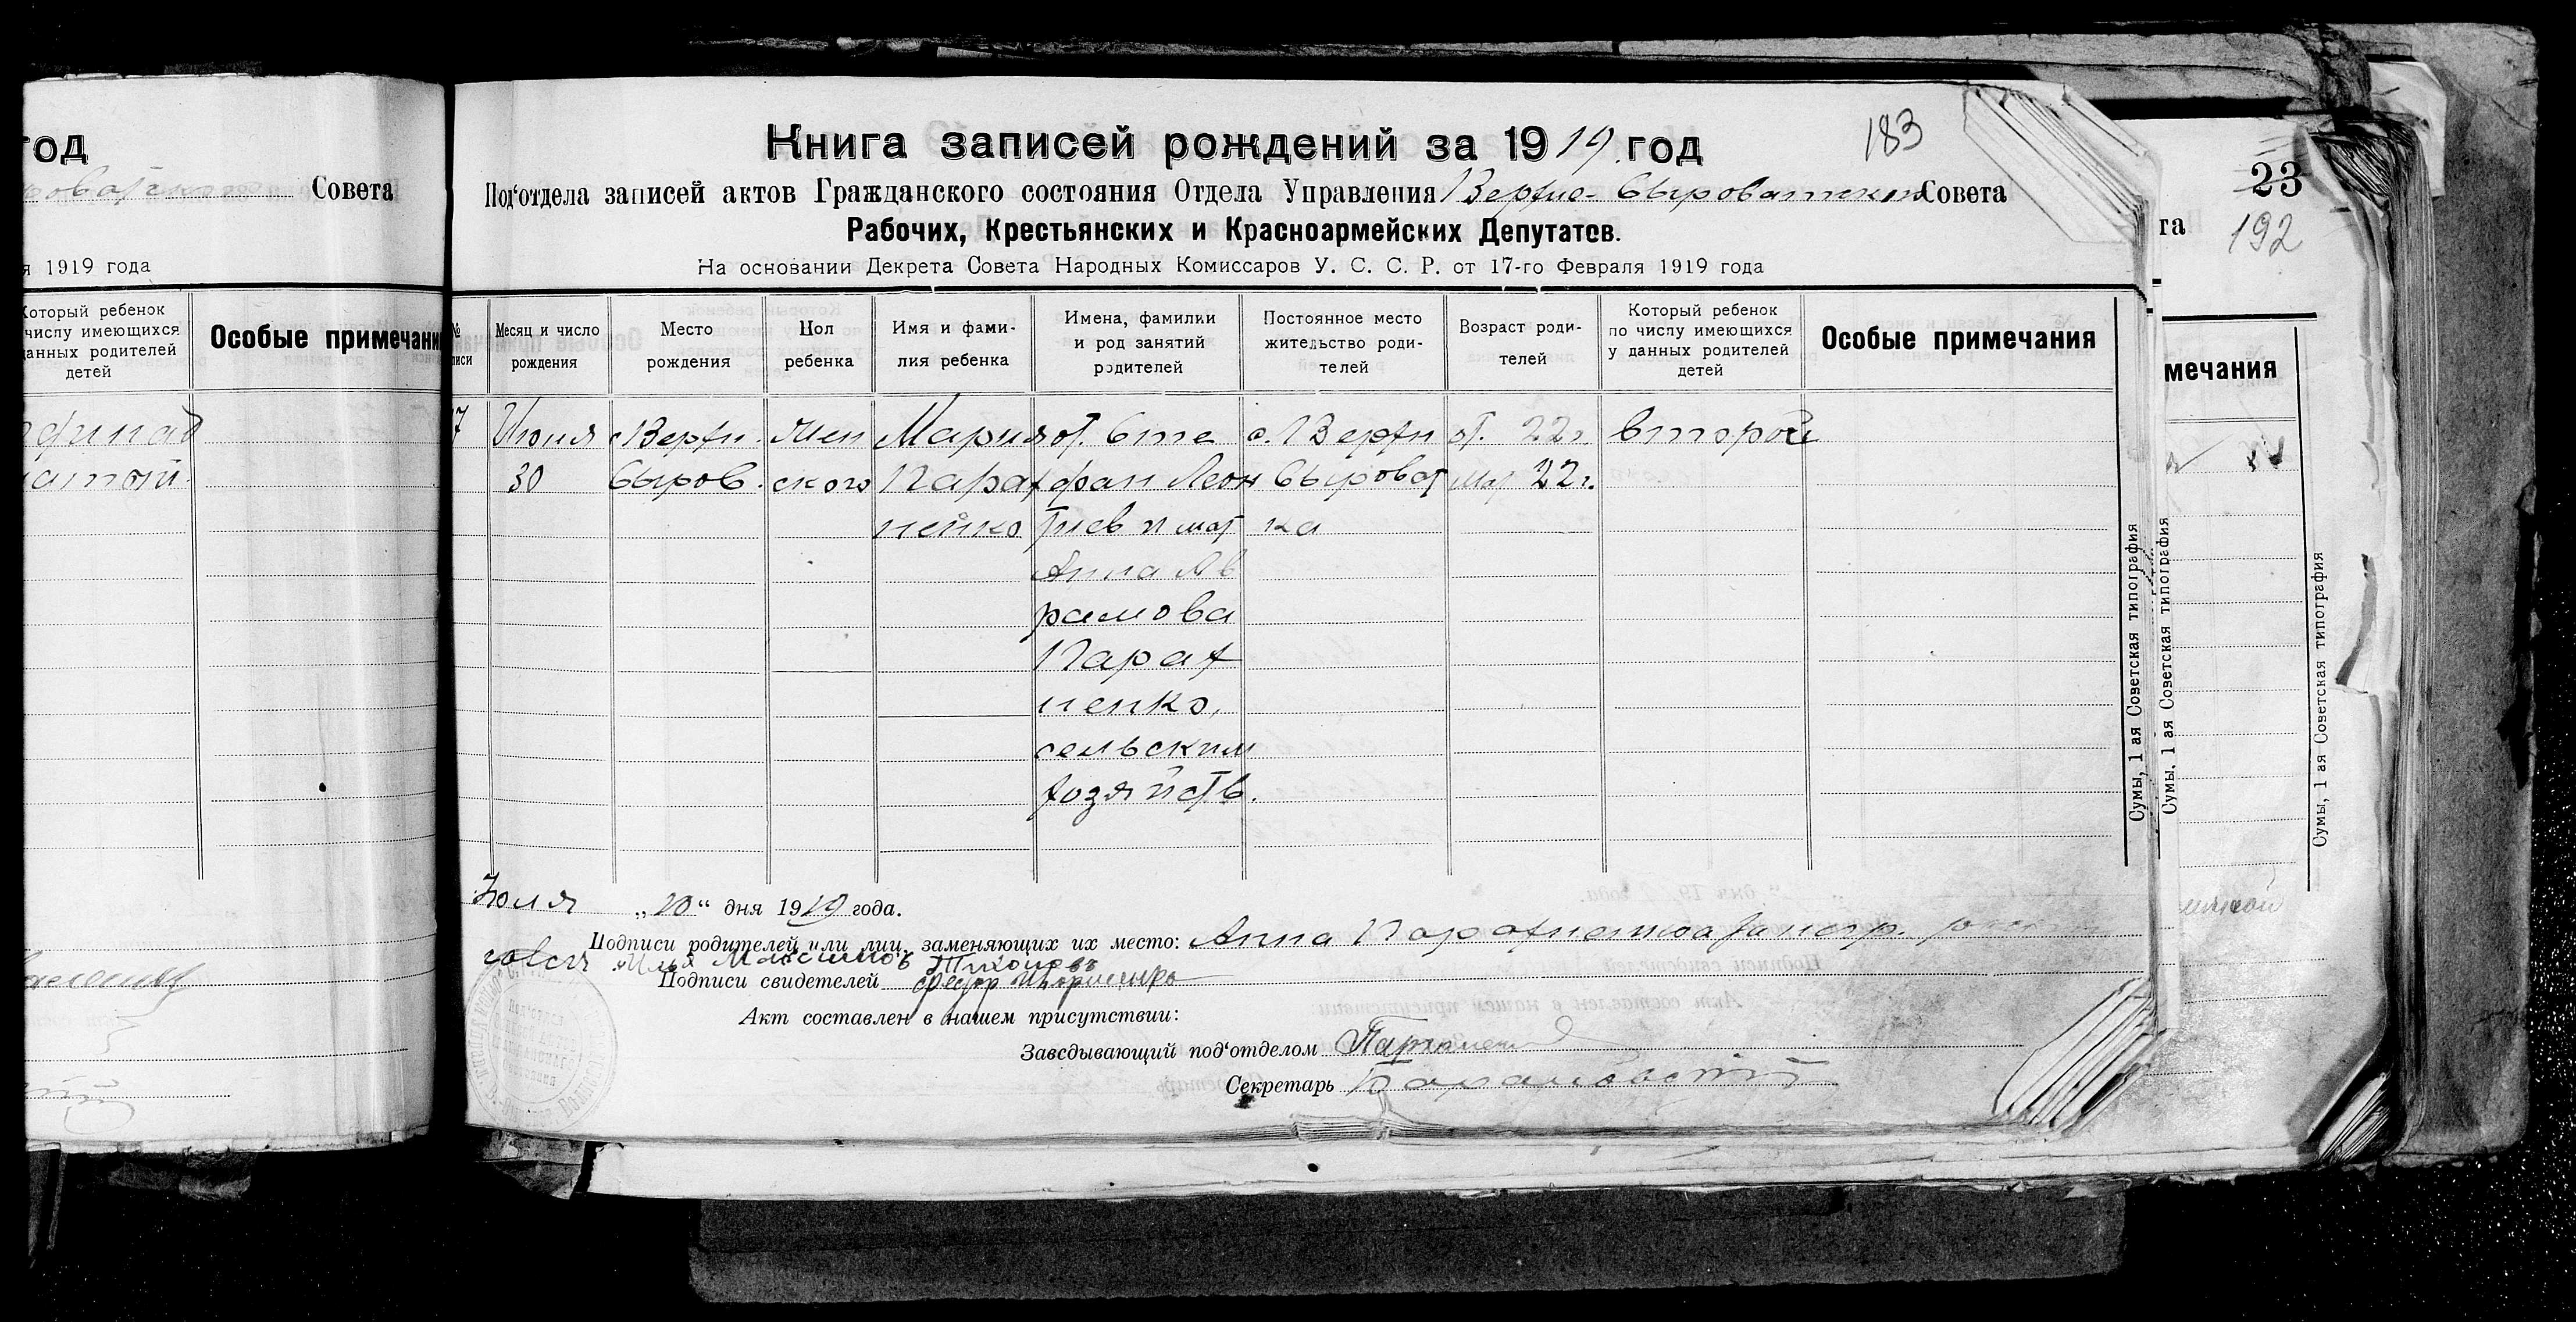 год
Совета
я 1919 года
Который ребенок
числу имеющихся
данных родителей
детей
Особые примечани
Книга записей рождений за 1919 год
183
Под‘отдела записей актов Гражданского состояния Отдела Управления Верхне-Сыроватского Совета
Рабочих, Крестьянских и Красноармейских Депутатов.
На основании Декрета Совета Народных Комиссаров У. С. С. Р. от 17-го Февраля 1919 года
Месяц и число рождения
Место рождения
Пол ребенка
Имя и фами-
лия ребенка
Имена, фамилии
и род занятий
родителей
Постоянное место
жительство роди-
телей
Возраст роди-
телей
Который ребенок
по числу имеющихся
у данных родителей
детей
Особые примечания
7 Июня с Верхн. Жен Мария от. Сте с. Верхн от. 22 г. второй
30 Сыров. ского Парах фан Леон Сыроват мат 22 г.
ненко тиев и мат ка
Анна Ав
рамова
Парах
ненко,
сельским
хозяйств.
Июля „20“ дня 1919 года.
Подписи родителей или лиц, заменяющих их место: Анна
Илья Максимов Тихонов
Подписи свидетелей Федор
Акт составлен в нашем присутствии:
Заведывающий под‘отделом
Секретарь
Сумы, 1 ая Советская типография
Сумы, 1 ая Советская типография
23
192
та
мечания
Сумы, 1 ая Советская типография